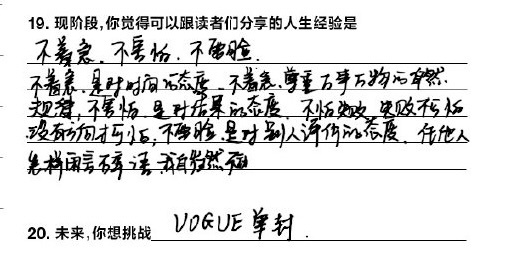 19. 现阶段,你觉得可以跟读者们分享的人生经验是
不着急. 不害怕. 不要脸.
不着急,是对时间的态度. 不着急,尊重万事万物的自然
规律, 不害怕. 是对结果的态度. 不怕失败 失败不可怕
没有方向才可怕, 不要脸,是对别人评价的态度. 任他人
怎样闲言碎语,我自岿然不动
20. 未来,你想挑战 VOGUE 单封.